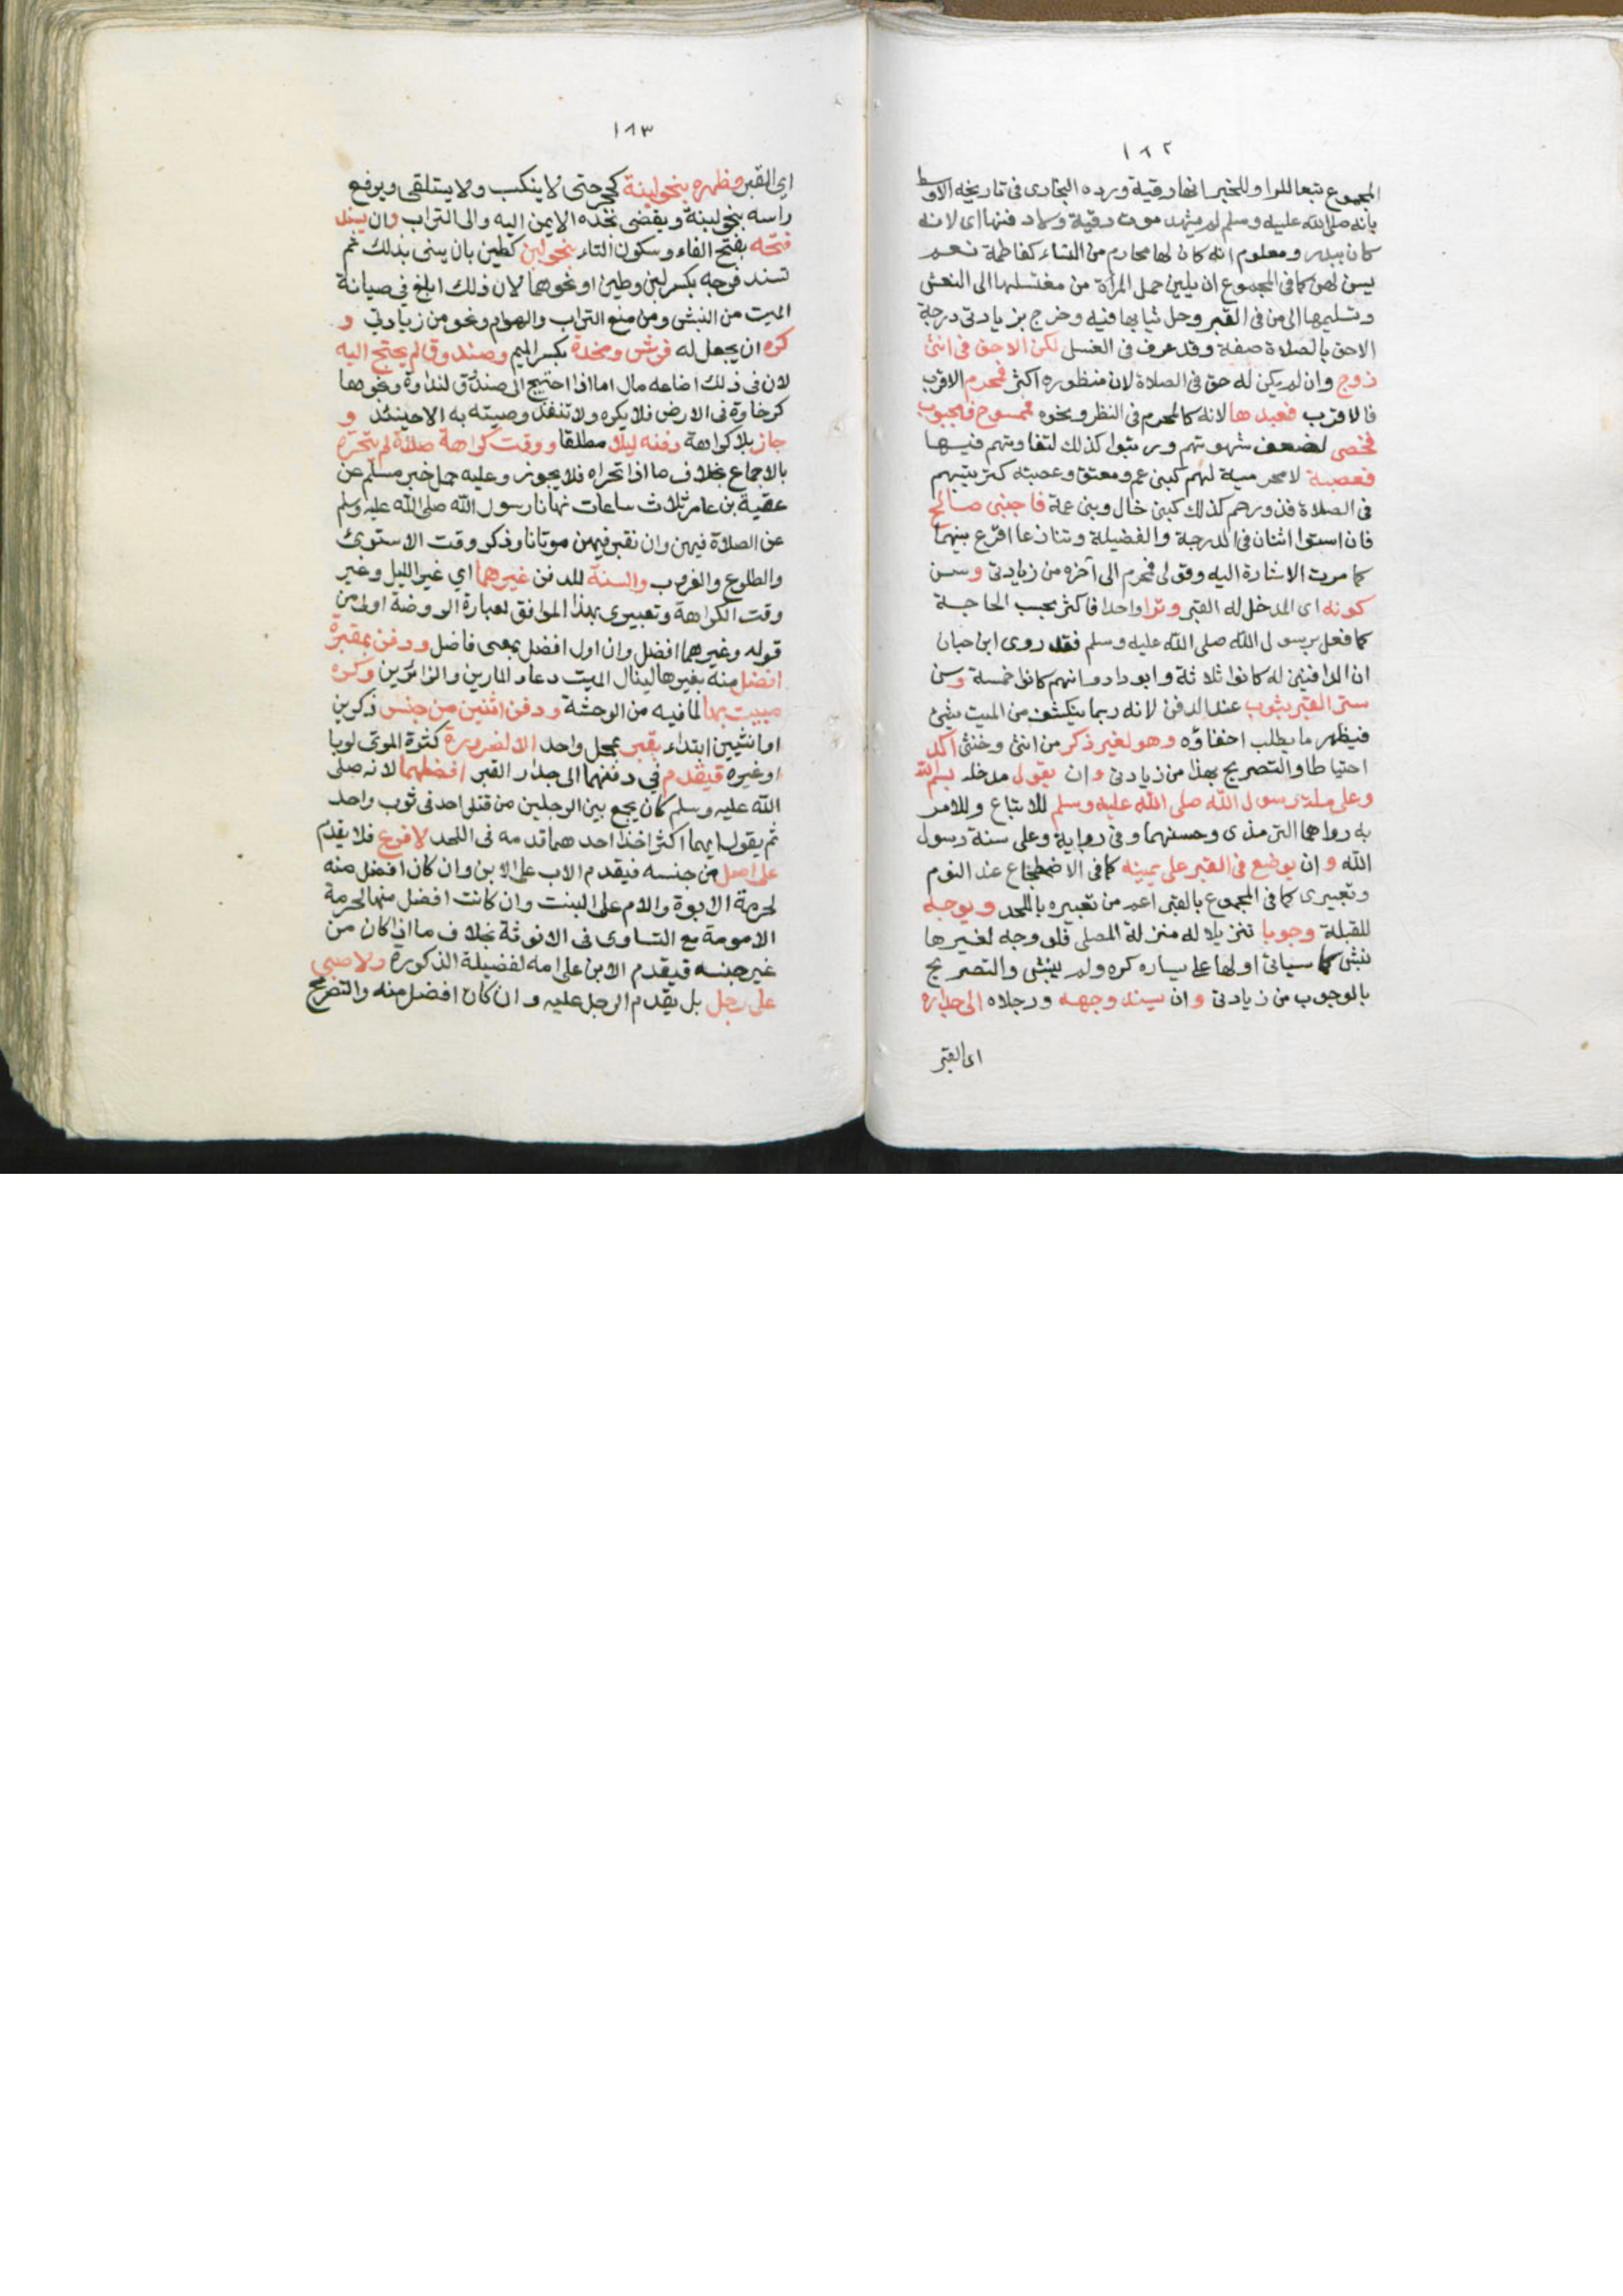 ١٨٢
المجموع تبعا للراو للخبر انها رقية ورده البخارى فى تاريخه الاوسط
بانه صلى الله عليه وسلم لم يشهد موت رقية ولا دفنها اى لانه
كان ببدر ومعلوم انه كان لها محارم من النساء كفاطمة نعم
يسن لهن كما فى المجموع ان يلين حمل المرأة من مغتسلها الى النعش
وتسليمها الى من فى القبر وحل ثيابها فيه وخرج بزيادتى درجة
الاحق بالصلاة صفة وقد عرف فى الغسل لكن الاحق فى انثى
زوج وان لم يكن له حق فى الصلاة لان منظوره اكثر فمحرم الاقرب
فالاقرب فعبدها لانه كالمحرم فى النظر ونحوه فممسوح فمجبوب
فخصى لضعف شهوتهم ورتبوا كذلك لتفاوتهم فيها
فعصبة لا محرمية لهم كبنى عم ومعتق وعصبته كترتيبهم
فى الصلاة فذو رحم كذلك كبنى خال وبنى عمة فاجنبى صالح
فان استوا اثنان فى الدرجة والفضيلة وتنازعا اقرع بينهما
كما مرت الاشارة اليه وقولى فمحرم الى آخره من زيادتى وسن
كونه اى المدخل له القبر وترا واحدا فاكثر بحسب الحاجة
كما فعل برسول الله صلى الله عليه وسلم فقد روى ابن حبان
ان الدافنين له كانوا ثلاثة وابو داود انهم كانوا خمسة وسن
ستر القبر بثوب عند الدفن لانه ربما ينكشف من الميت شئ
فيظهر ما يطلب اخفاؤه وهو لغير ذكر من انثى وخنثى اكد
احتياطا والتصريح بهذا من زيادتى وان يقول مدخله بسم الله
وعلى ملة رسول الله صلى الله عليه وسلم للاتباع وللامر
به رواهما الترمذى وحسنهما وفى رواية وعلى سنة رسول
الله وان يوضع فى القبر على يمينه كما فى الاضطجاع عند النوم
وتعبيرى كما فى المجموع بالقبر اعم من تعبيره باللحد ويوجه
للقبلة وجوبا تنزيلا له منزلة المصلى فلو وجه لغيرها
نبش كما سياتى او لها على يساره كره ولم ينبش والتصريح
بالوجوب من زيادتى وان يسند وجهه ورجلاه الى جداره
اى القبر
١٨٣
اى القبر وظهره بنحو لبنة كحجر حتى لا ينكب ولا يستلقى ويرفع
راسه بنحو لبنة ويفضى بخده الايمن اليه والى التراب وان يسد
فتحه بفتح الفاء وسكون التاء بنحو لبن كطين بان يبنى بذلك ثم
تسد فرجه بكسر لبن وطين او نحوهما لان ذلك ابلغ فى صيانة
الميت من النبش ومن منع التراب والهوام ونحو من زيادتى و
كره ان يجعل له فرش ومخدة بكسر الميم وصندوق لم يحتج اليه
لان فى ذلك اضاعه مال اما اذا احتيج الى صندوق لنداوة ونحوها
كرخاوة فى الارض فلا يكره ولا تنفذ وصيته به الا حينئذ و
جاز بلا كراهة دفنه ليلا مطلقا ووقت كراهة صلاة لم يتحره
بالاجماع بخلاف ما اذا تحراه فلا يجوز وعليه حمل خبر مسلم عن
عقبة بن عامر ثلاث ساعات نهانا رسول الله صلى الله عليه وسلم
عن الصلاة فيهن وان نقبر فيهن موتانا وذكر وقت الاستوى
والطلوع والغروب والسنة للدفن غيرهما اي غير الليل وغير
وقت الكراهة وتعبيرى بهذا الموافق لعبارة الروضة اولى من
قوله وغيرهما افضل وان اول افضل بمعنى فاضل ودفن بمقبرة
افضل منه بغيرها لينال الميت دعاء المارين والزائرين وكره
مبيت بها لما فيه من الوحشة ودفن اثنين من جنس ذكرين
او انثيين ابتداء بقبر بمحل واحد الا لضرورة كثرة الموتى لوبا
او غيره فيقدم في دفنهما الى جدار القبر افضلهما لانه صلى
الله عليه وسلم كان يجمع بين الرجلين من قتلى احد فى ثوب واحد
ثم يقول ايهما اكثر اخذا احدهما قدمه فى اللحد لا فرع فلا يقدم
على اصل من جنسه فيقدم الاب على الابن وان كان افضل منه
لحرمة الابوة والام على البنت وان كانت افضل منها لحرمة
الامومة مع التساوى فى الانوثة بخلاف ما اذا كان من
غير جنسه فيقدم الابن على امه لفضيلة الذكورة ولا صبى
على رجل بل يقدم الرجل عليه وان كان افضل منه والتصريح